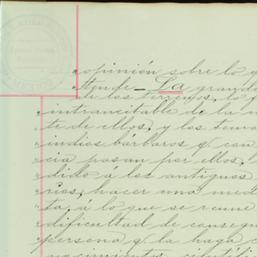 opinión sobre lo q
La grande
de los terrenos, lo p
intransitable de la m
te de ellos, y los tema
indios bárbaros q con
cia pasan por ellos, h
dido á los antiguos
rios, hacer una med
ta, á lo que se reune
dificultad de consegu
persona q la haga c